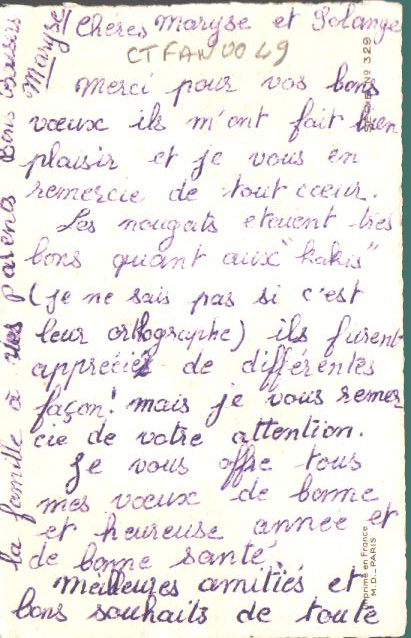 Chères Maryse et Solange
CTFAN0049
Merci pour vos bons
vœux ils m'ont fait bien
plaisir et je vous en
remercie de tout cœur.
Les nougats etaient très
bons quant aux "kakis"
(je ne sais pas si c'est
leur orthographe) ils furent
appréciés de différentes
façon! mais je vous remer
cie de votre attention.
Je vous offre tous
mes vœux de bonne
et heureuse année et
de bonne santé,
Meilleures amitiés et
bons souhaits de toute
la famille à vos Parents Bons baisers
Maryse
N° 329
Imprimé en France
M.D. - PARIS